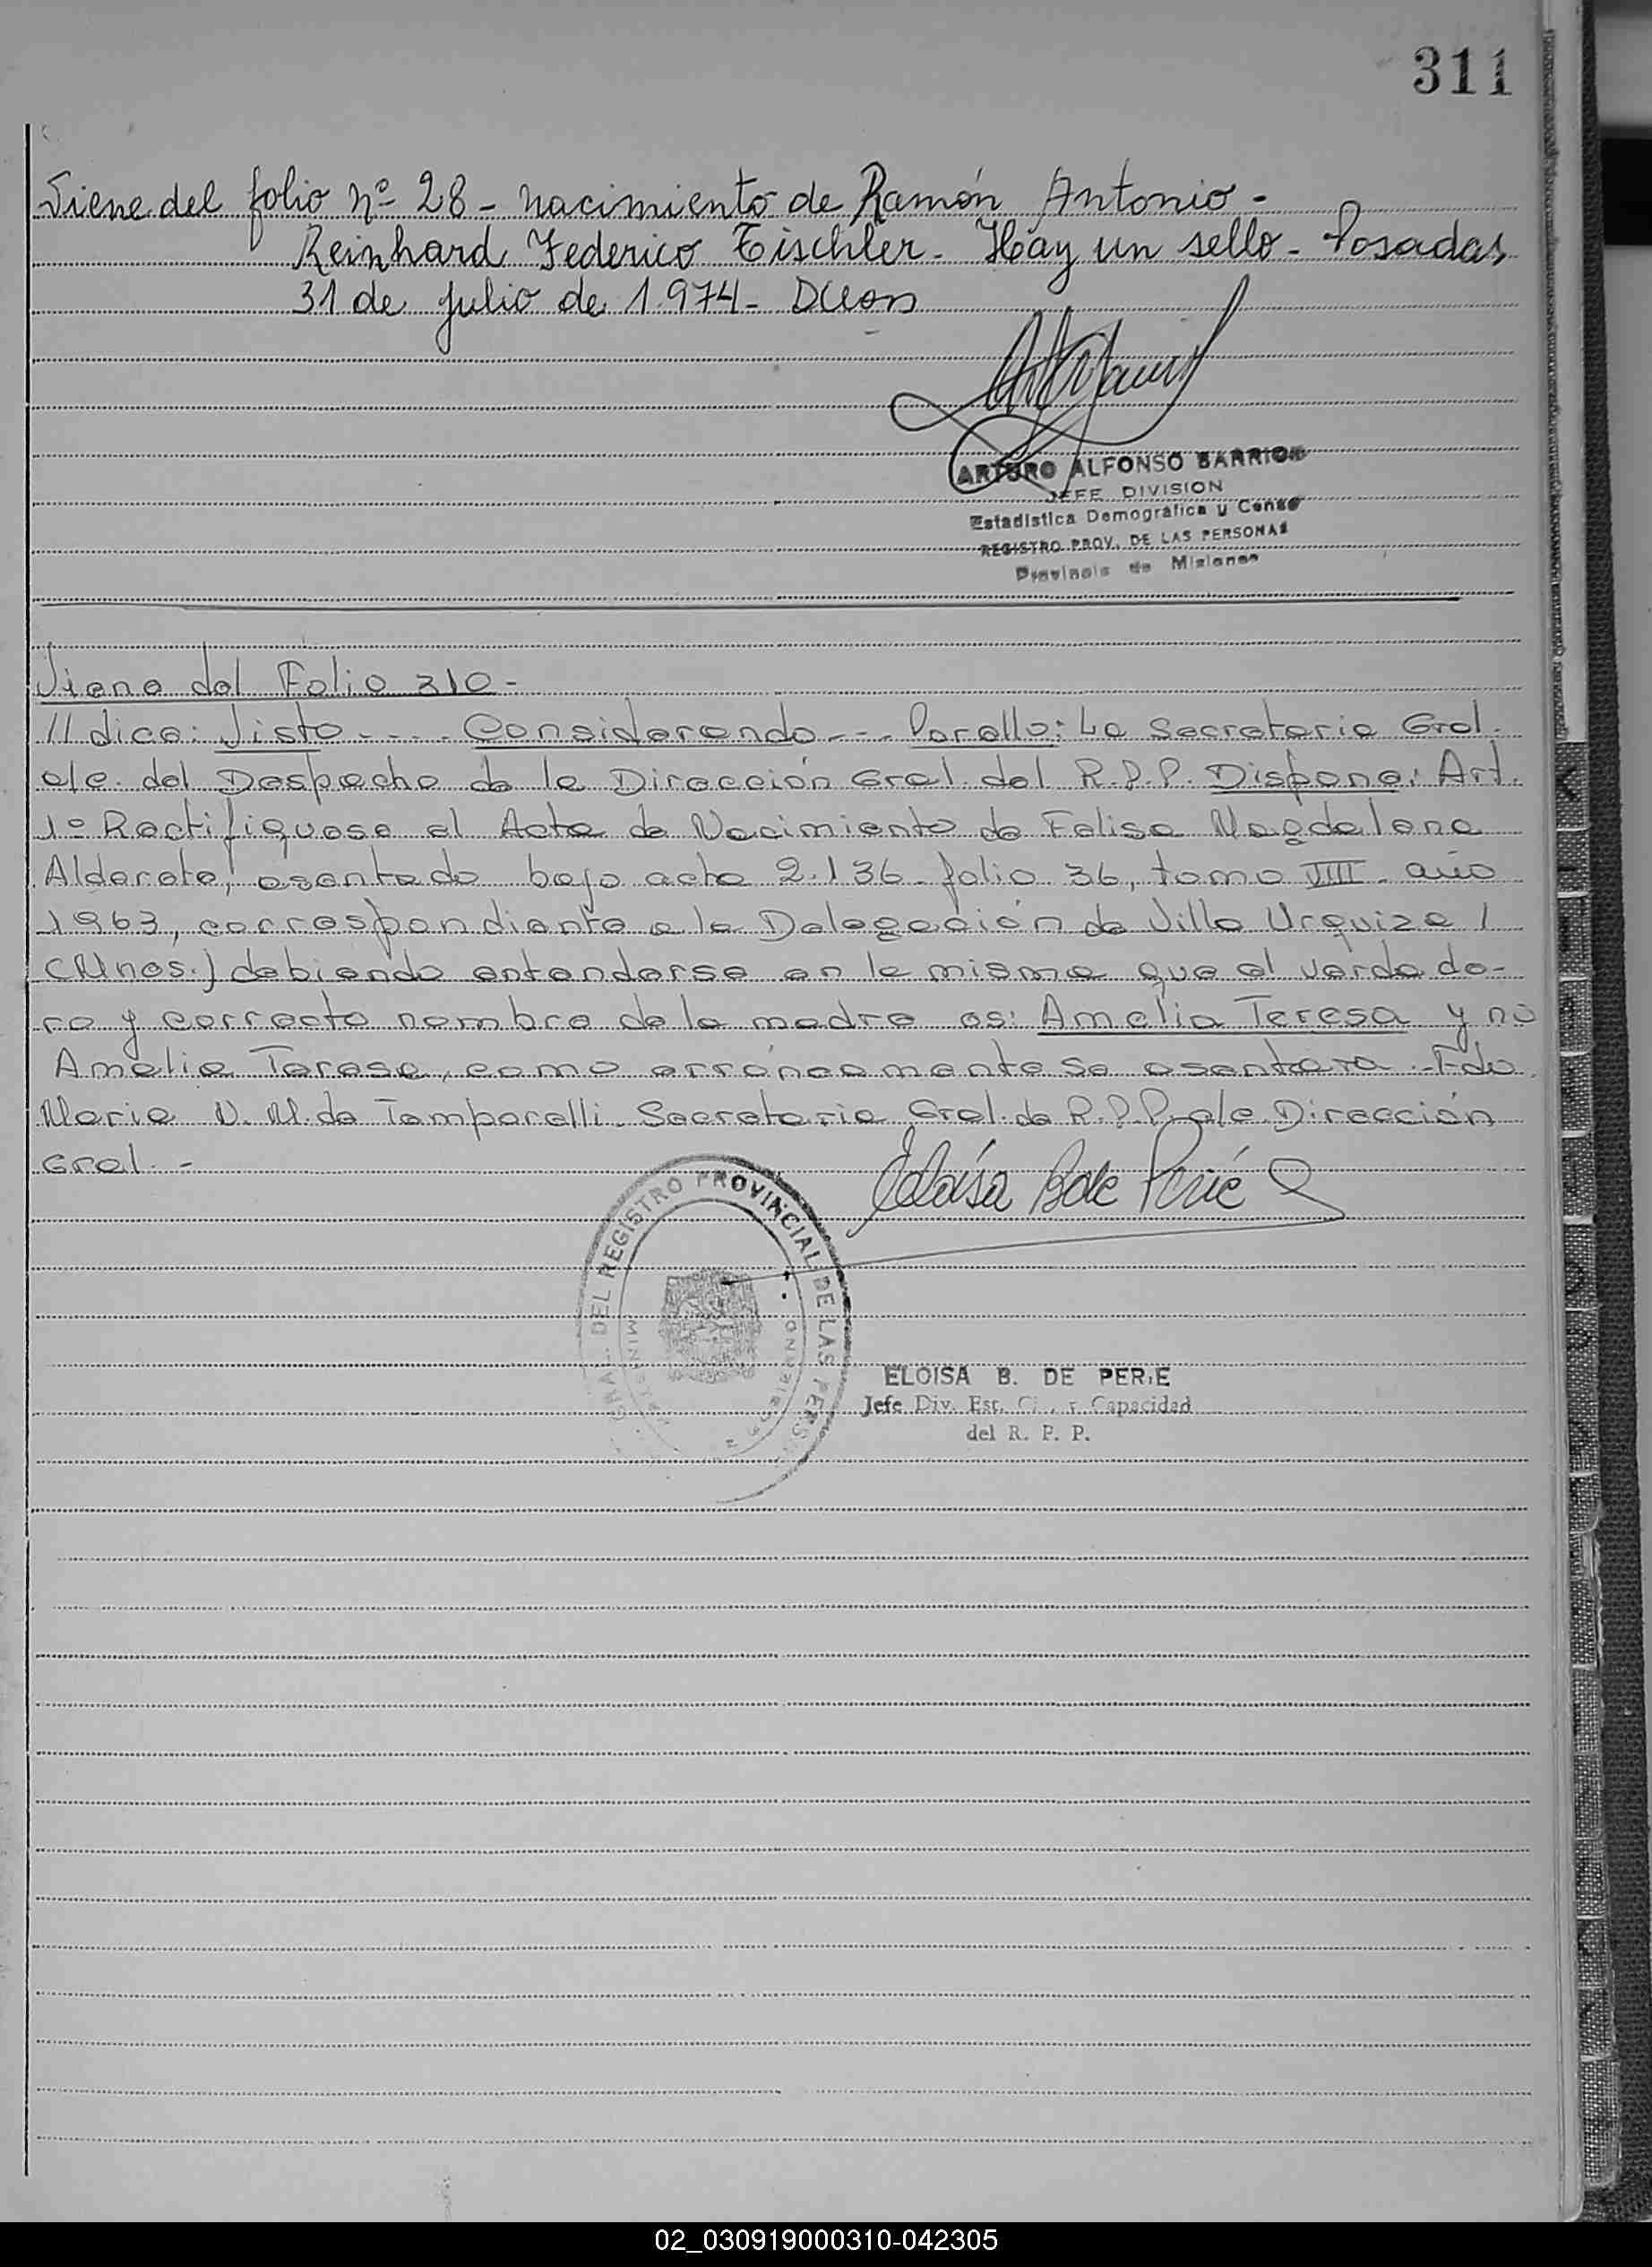 311
Viene del folio Nº 28 - Nacimiento de Ramón Antonio -
Reinhard Federico Tischler - Hay un sello - Posadas,
31 de julio de 1.974 -
ARTURO ALFONSO BARRIOS
JEFE DIVISION
Estadistica Demográfica y Censo
REGISTRO PROV. DE LAS PERSONAS
Provincia de Misiones
Viene del Folio 310 -
// dice: Visto - - - - Considerando - - - Porello: La Secretaria Gral.
a/c. del Despacho de la Dirección Gral. del R.P.P. Dispone: Art.
1º Rectifiquese el Acta de Nacimiento de Felisa Magdalena
Alderete, asentado bajo acta 2.136 - folio 36, tomo VIII - año
1963, correspondiente a la Delegación de Villa Urquiza /
(Mnes.) debiendo entenderse en la misma que el verdade-
ro y correcto nombre de la madre es: Amelia Teresa y no
Amalia Teresa, como erróneamente se asentara. - Fdo.
Maria N. M. de Tamparelli. Secretaria Gral. de R.P.P. a/c Dirección
Gral. -
Eloísa B de Perié
GRAL. DEL REGISTRO PROVINCIAL DE LAS PERSONAS
ELOISA B. DE PERIE
Jefe Div. Est. Ci . y Capacidad
del R. P. P.
02_030919000310-042305